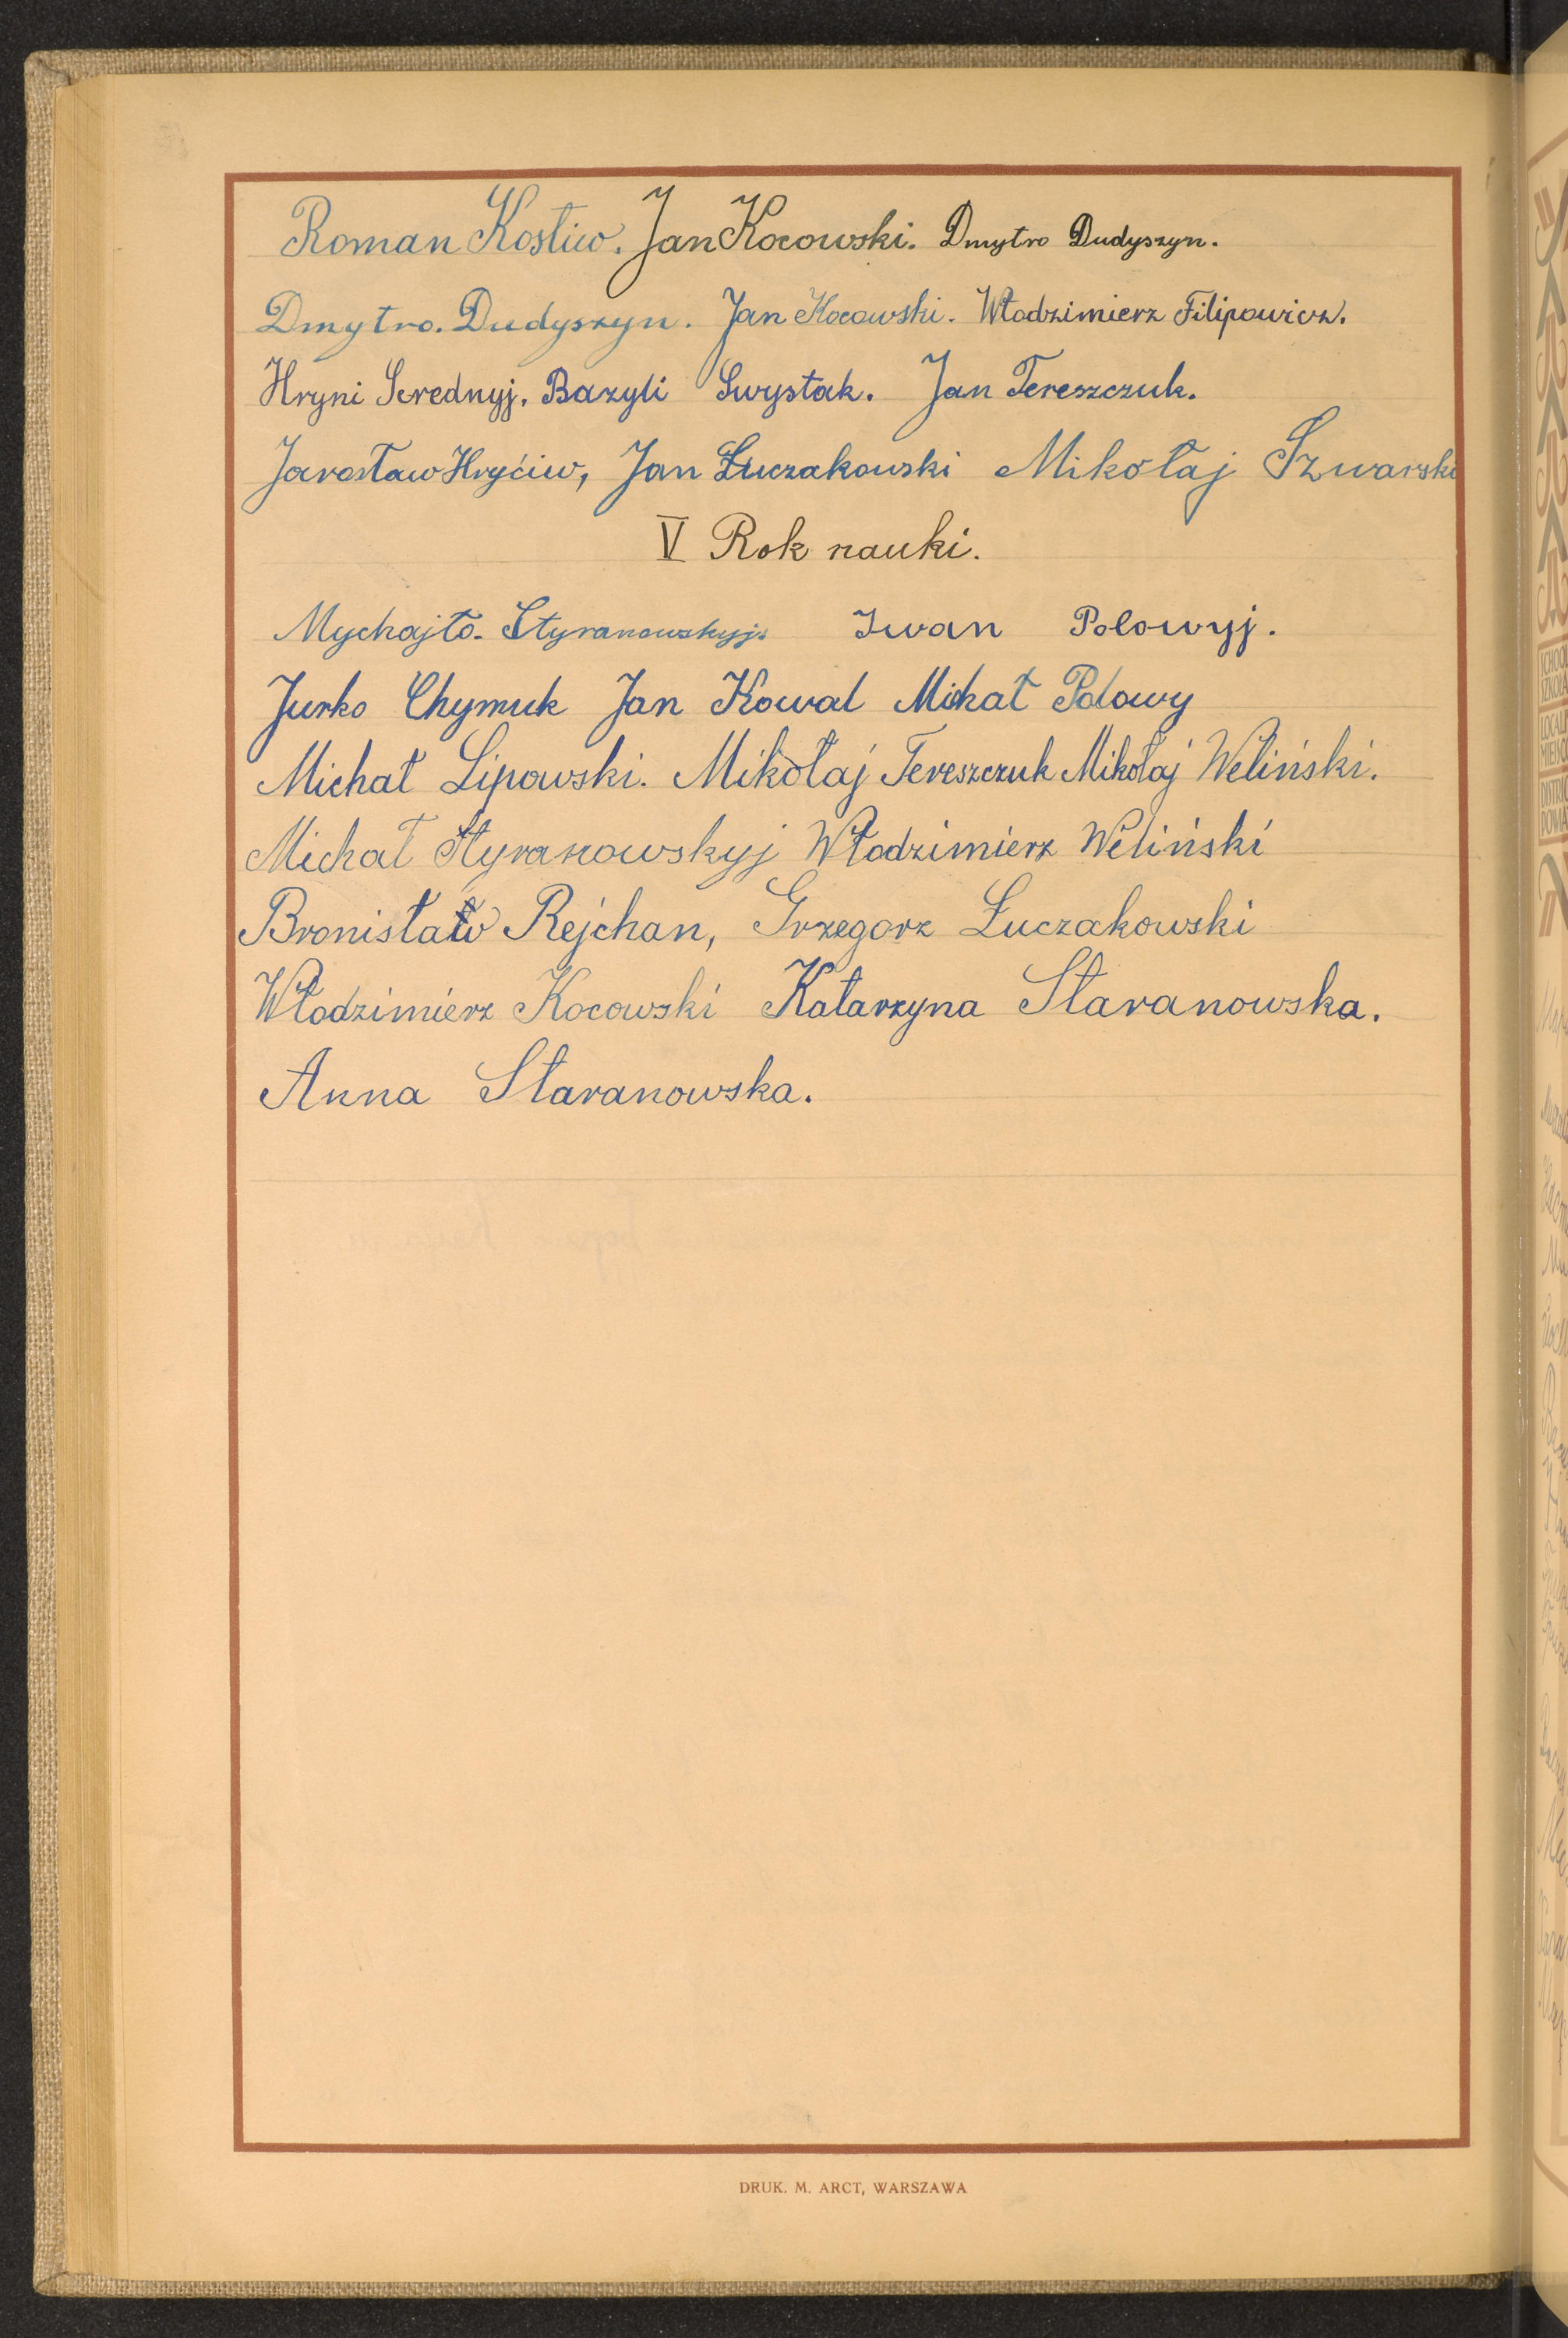 Roman Kostiw. Jan Kocowski. Dmytro Dudyszyn.
Dmytro. Dudyszyn. Jan Kocowski. Włodzimierz Filipowicz.
Hryni Serednyj. Bazyli Swystak. Jan Tereszczuk.
Jarosław Hryćiw, Jan Łuczakowski Mikołaj Szwarski
V Rok nauki.
Mychajło. Styranowskyj. Iwan Polowyj.
Jurko Chymuk Jan Kowal Michał Polowy
Michał Lipowski. Mikołaj Tereszczuk Mikołaj Weliński.
Michał Styranowskyj Włodzimierz Weliński
Bronisław Rejchan, Grzegorz Łuczakowski
Włodzimierz Kocowski Katarzyna Staranowska.
Anna Staranowska.
DRUK. M. ARCT, WARSZAWA